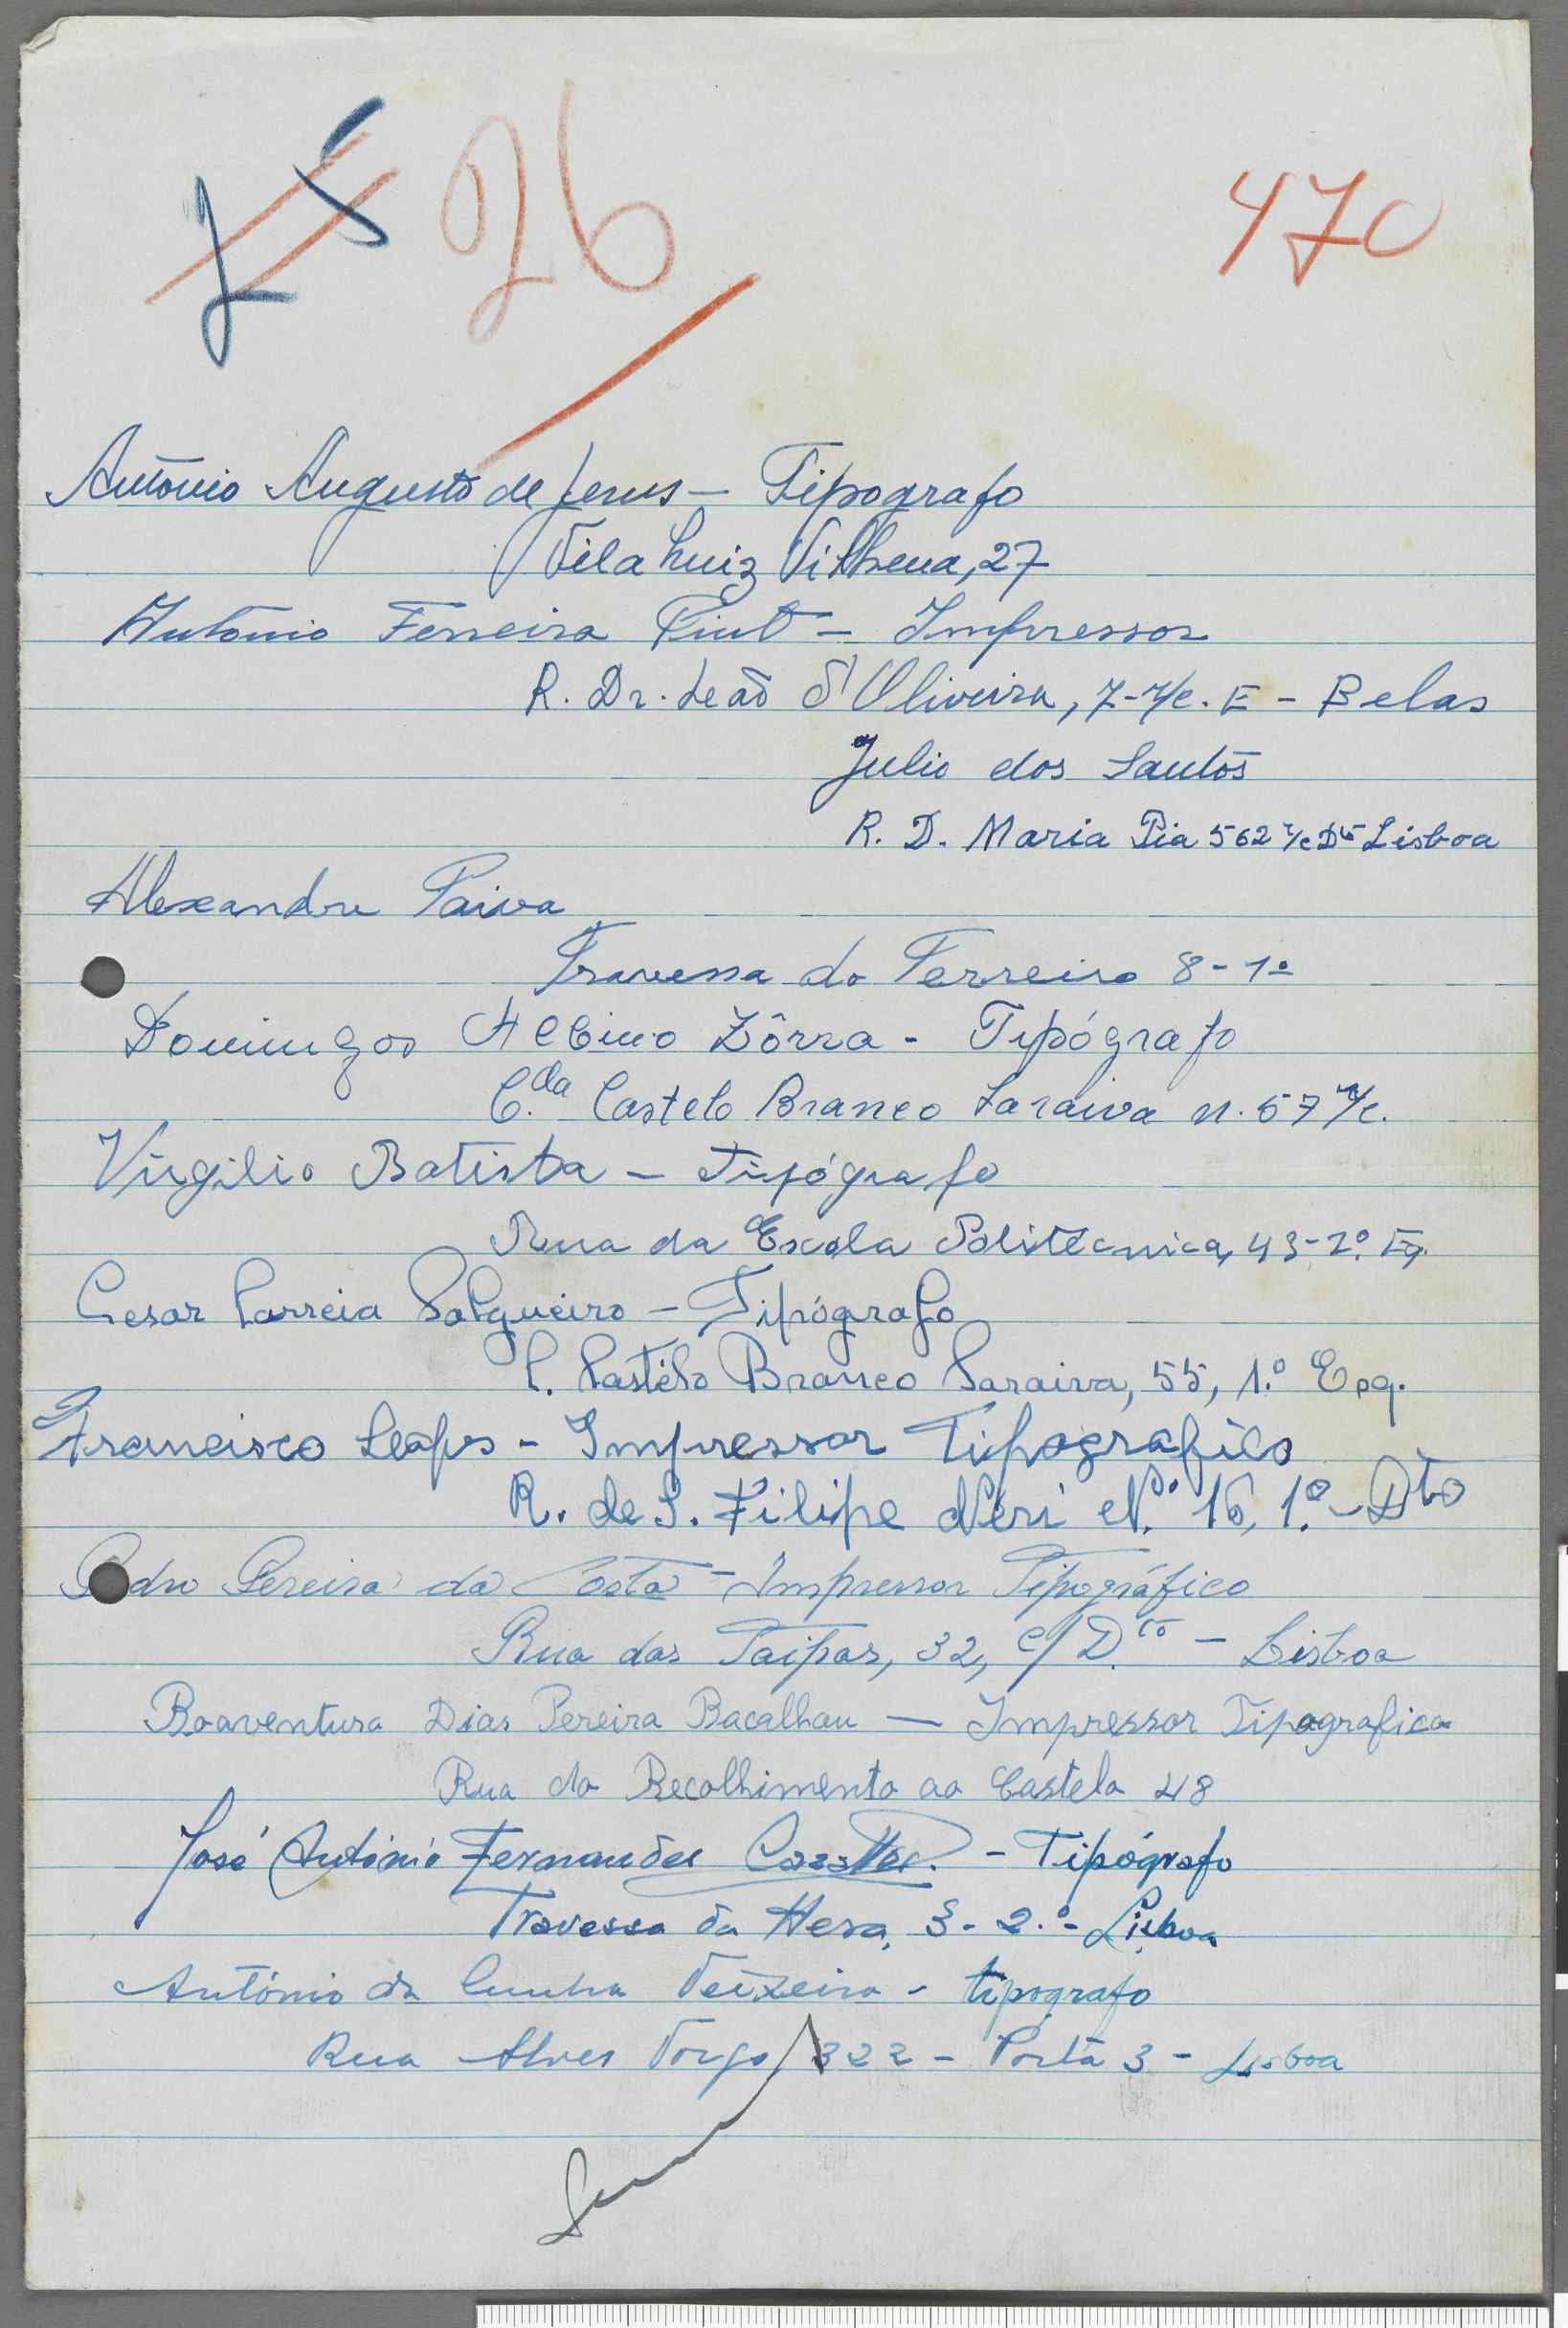 26
470
António Augusto de Jesus - Tipografo
Vila Luiz Vilhena, 27
Antonio Ferreira Pinto - Impressor
R. Dr. Leão d'Oliveira, 7-r/c. E - Belas
Julio dos Santos
R. D. Maria Pia 562 r/c Dto Lisboa
Alexandre Paiva
Travessa do Terreiro 8-1º
Domingos Albino Zôrra - Tipógrafo
C.da Castelo Branco Saraiva n. 57 r/c.
Virgilio Batista - Tipógrafo
Rua da Escola Politécnica, 43-2º. Eq.
Cesar Correia Salgueiro - Tipógrafo
C. Castelo Branco Saraiva, 55, 1.º Esq.
Francisco - Impressor Tipografico
R. de S. Filipe Neri N.º 16, 1.º - Dto
Pedro Pereira da Costa - Impressor Tipográfico
Rua das Taipas, 32, c/ D.to - Lisboa
Boaventura Dias Pereira Bacalhau - Impressor Tipografico
Rua do Recolhimento ao Castelo 48
José António Fernandes - Tipógrafo
Travessa da Hera, 3 - 2.º - Lisboa
António da Cunha Teixeira - tipógrafo
Rua Alves Torgo 322 - Porta 3 - Lisboa